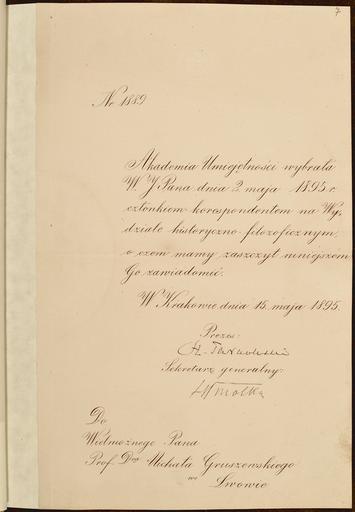 7
Nr 1889
Akademia Umiejętności wybrała
W J Pana dnia 2 maja 1895 r.
członkiem korespondentem na Wy-
dziale historyczno-filozoficznym
o czem mamy zaszczyt niniejszem
Go zawiadomić.
W Krakowie dnia 15 maja 1895.
Prezes:
St. Tarnowski
Sekretarz generalny:
S Smolka
Do
Wielmożnego Pana
Prof. Dra Michała Gruszewskiego
we
Lwowie